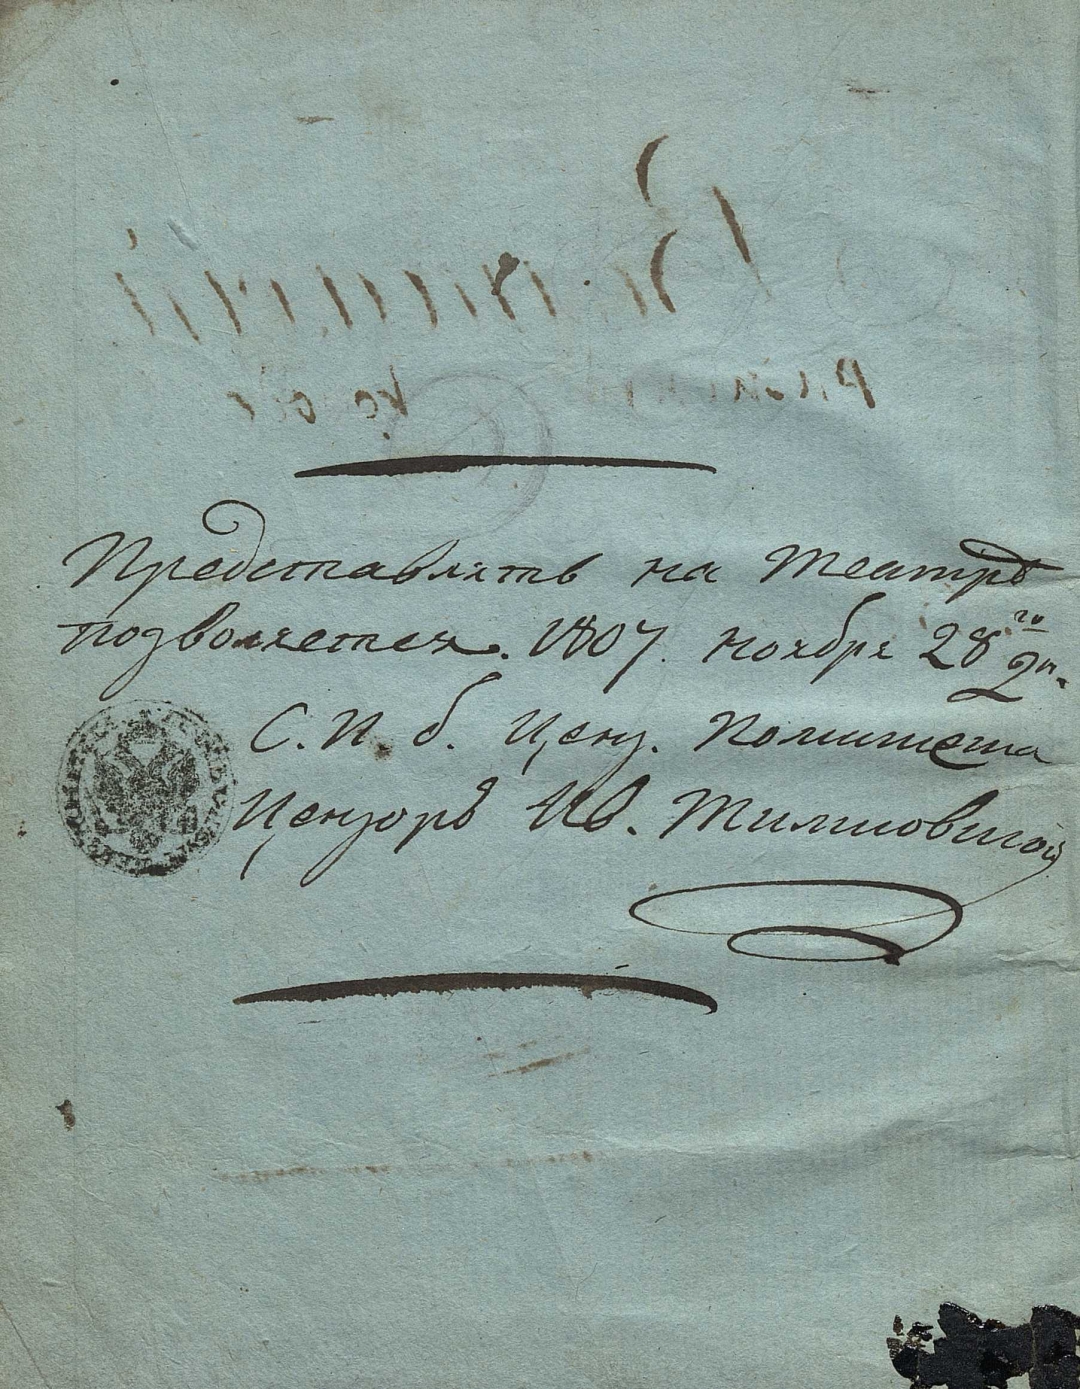 Представлять на Театрѣ
позволяется. 1807. ноября 28 го дн.
С. П. б. Ценз. Комитета
Цензоръ Ив. Тимковской